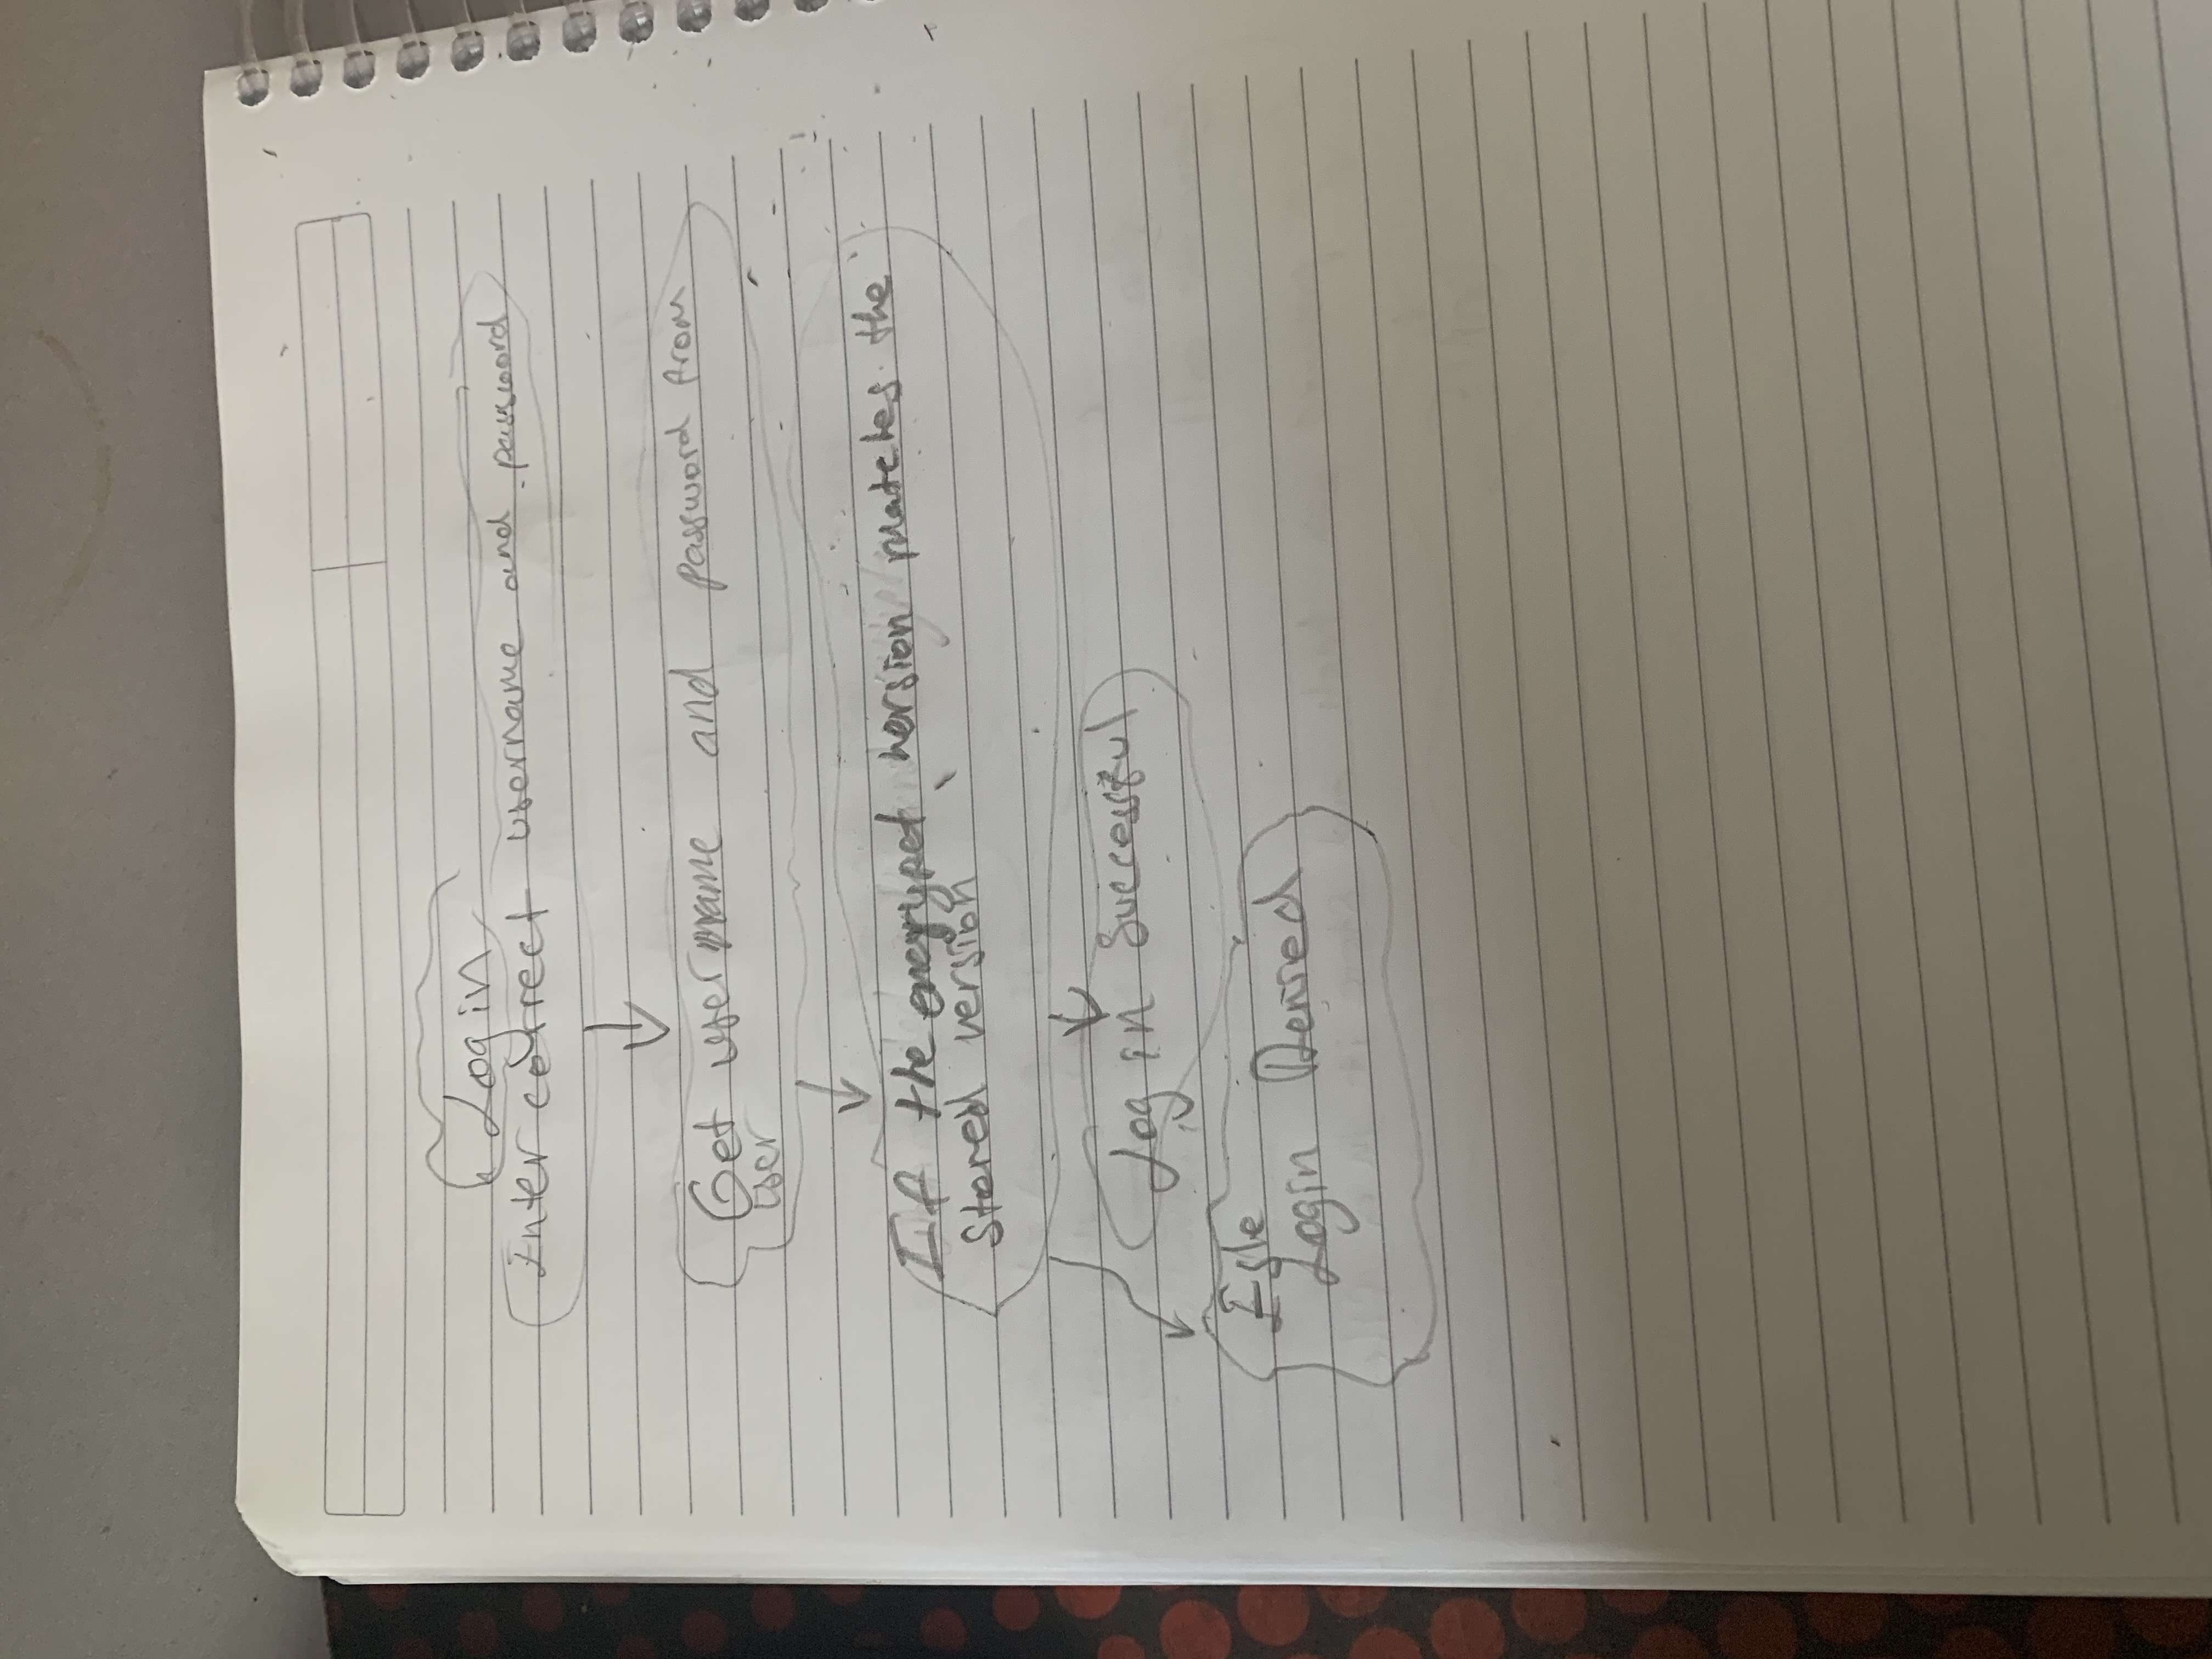 Login
Enter correct username and password
Get username and password from
user
If the encrypet version matches the
stored version
Log in Successful
Esle
Login Denied